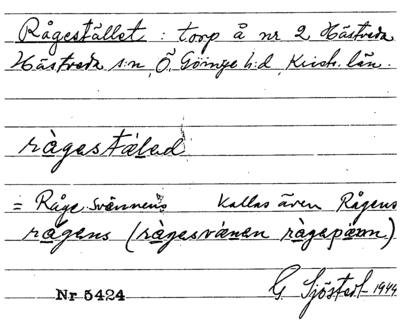 Rågestället : torp å nr 2 Hästveda
Hästveda s:n, Ö. Göinge h:d, Krist. län.
rågestäled
= Råge Svännens kallas även Rågens
rågens (rågesvänen rågepäron)
Nr 5424 G. Sjöstedt 1944